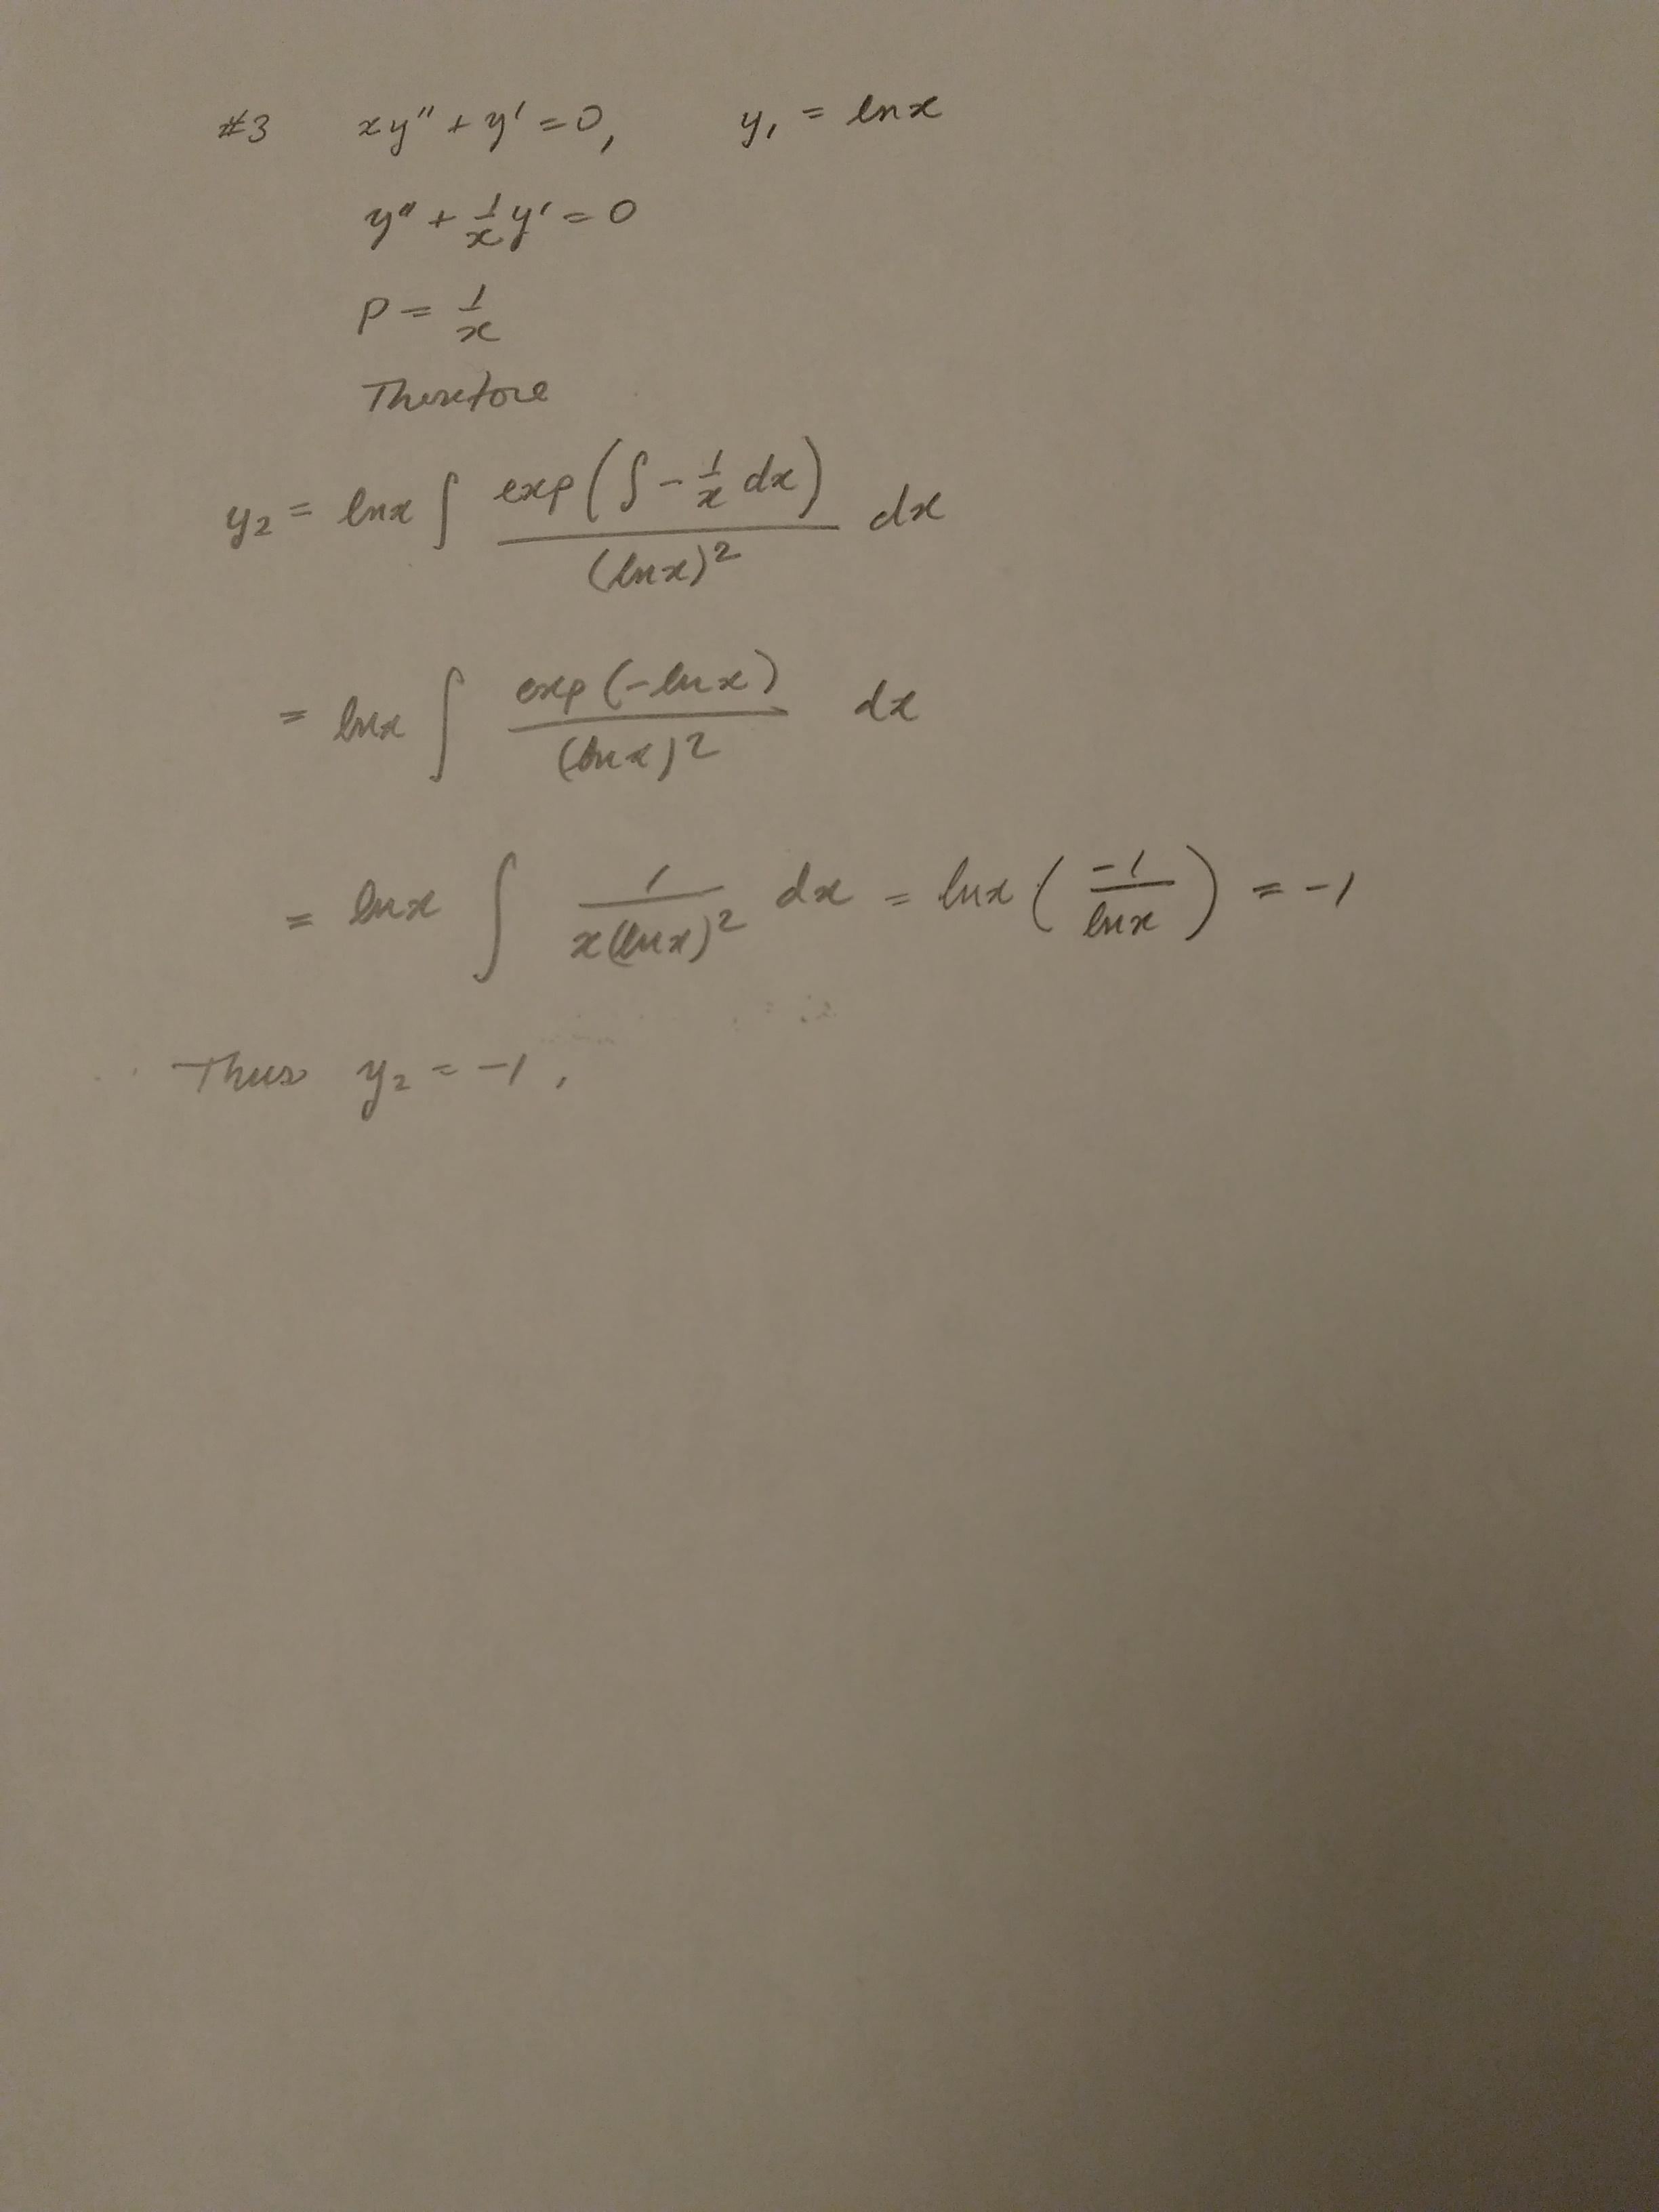 #3 xy'' + y' = 0, y₁ = ln x
y'' + 1/x y' = 0
P = 1/x
Therefore
y₂ = ln x ∫ exp(∫ - 1/x dx) / (ln x)² dx
= ln x ∫ exp(-ln x) / (ln x)² dx
= ln x ∫ 1 / x(ln x)² dx = ln x (-1 / ln x) = -1
Thus y₂ = -1.